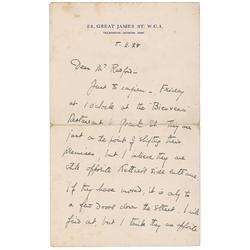 24, GREAT JAMES ST. W.C.1.
Dear Mr
Just to confirm - Friday
at 1 o'clock at the "Bienvenu"
Restaurant in Street. They are
just on the point of shifting their
premises, but I believe they are
still opposite side entrance.
If they have moved, it is only to
a few doors down the street. I will
find out, but I think they are opposite